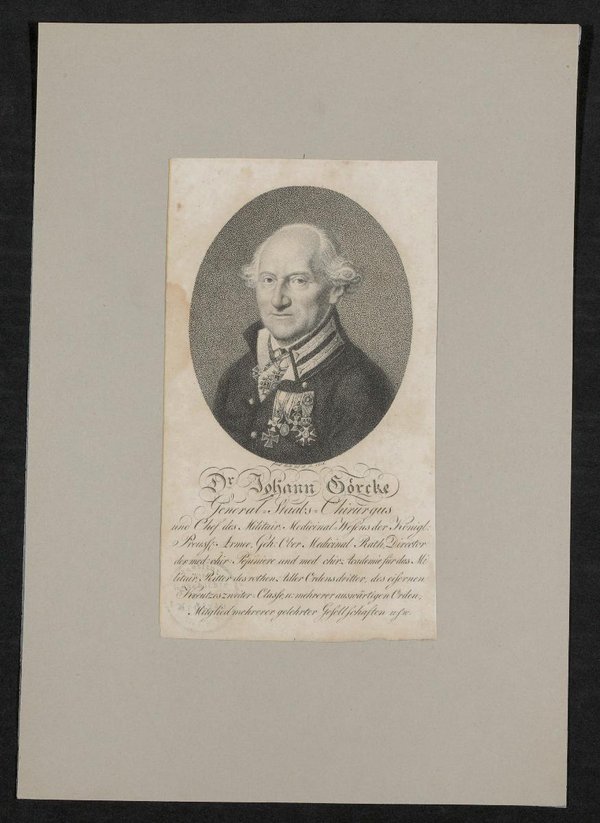 Dr Johann Görcke
General-Staabs-Chirurgus
und Chef des Militair-Medicinal-Wesens der Königl:
Preuss: Armee, Geh: Ober Medicinal Rath, Director
der med: chir: Pepiniere und med: chir: Academie für das Mi
litair, Ritter des rothen Adler Ordens dritter, des eisernen
Kreutzes zweiter Classe, u: mehrerer auswärtigen Orden,
Mitglied mehrerer gelehrter Gesellschaften u.s.w.